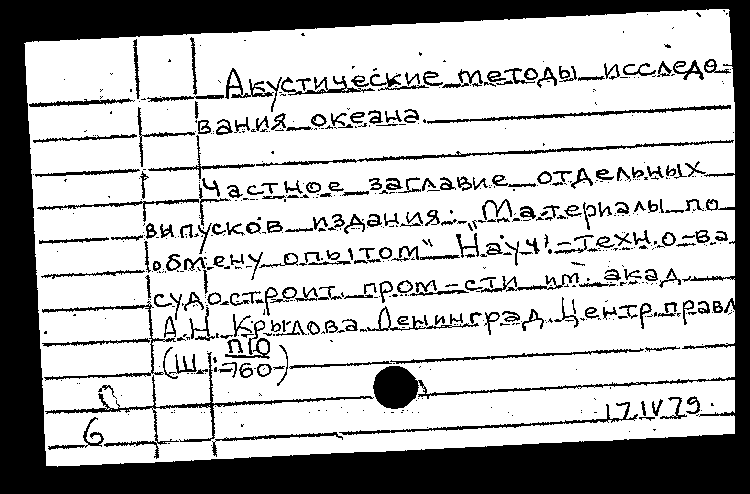 Акустические методы исследо-
вания океана.
Частное заглавие отдельных
выпусков издания: „Материалы по
обмену опытом“ Науч.-техн. о-ва
судостроит. пром-сти им. акад.
А.Н. Крылова. Ленинград. Центр. правл
(Ш : П10
760)
6
17.IV79.